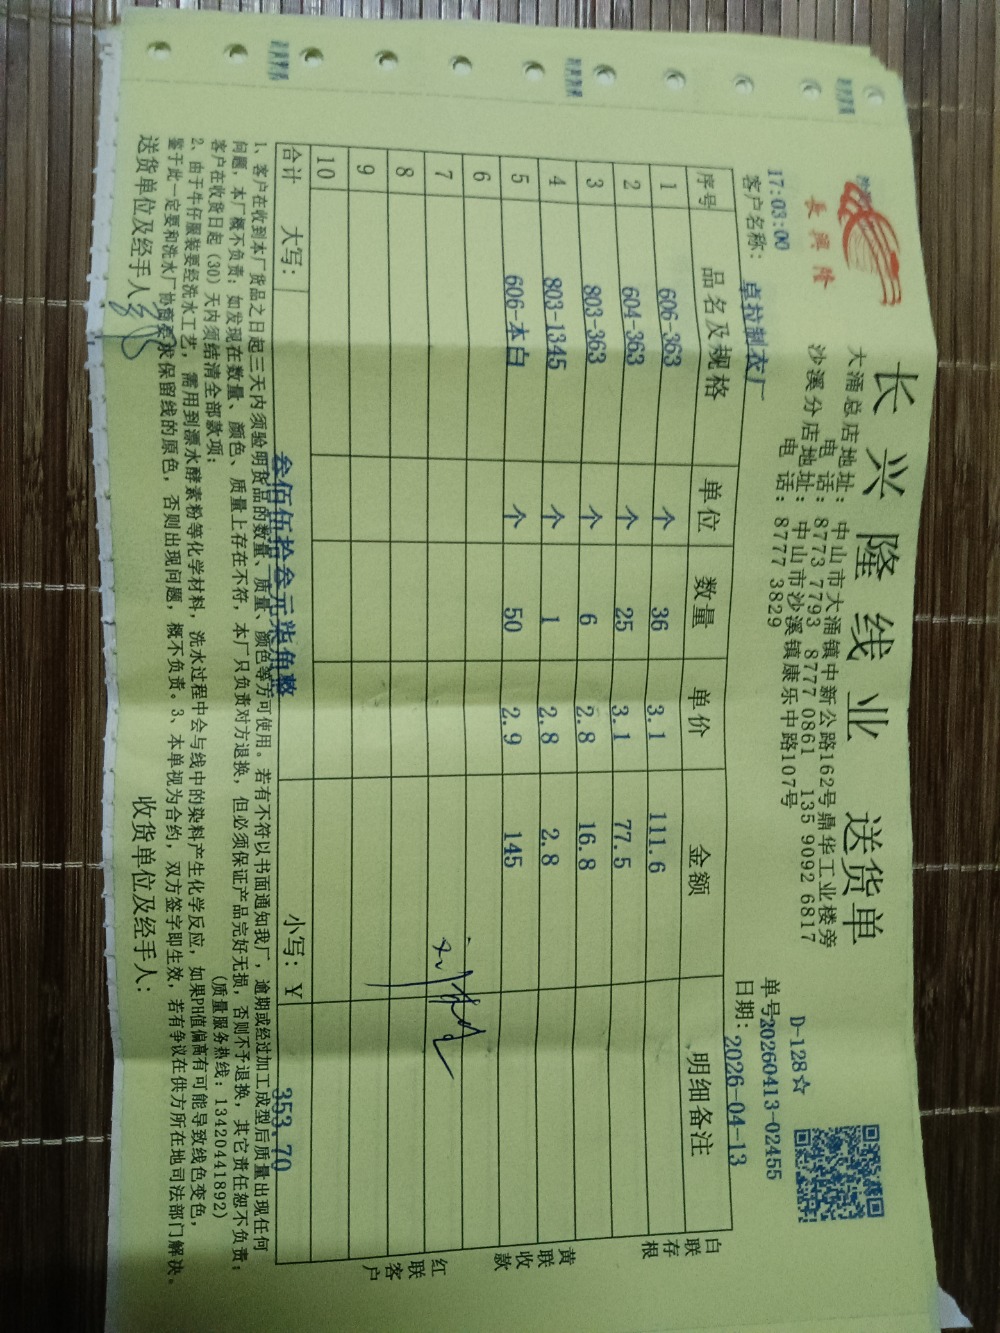 長興隆
长兴隆线业 送货单
大涌总店地址：中山市大涌镇中新公路162号鼎华工业楼旁
电话：8773 7793 8777 0861 135 9092 6817
沙溪分店地址：中山市沙溪镇康乐中路107号
电话：8777 3829
D-128☆
单号20260413-02455
17:03:00
客户名称：卓拉制衣厂
日期：2026-04-13
序号 品名及规格 单位 数量 单价 金额 明细备注
1 606-363 个 36 3.1 111.6
2 604-363 个 25 3.1 77.5
3 803-363 个 6 2.8 16.8
4 803-1345 个 1 2.8 2.8
5 606-本白 个 50 2.9 145
6
7
8
9
10
合计 大写：叁佰伍拾叁元柒角整 小写：￥ 353.70
白联存根
黄联收款
红联客户
1、客户在收到本厂货品之日起三天内须验明货品的数量、质量、颜色等方可使用。若有不符以书面通知我厂，逾期或经过加工成型后质量出现任何
问题，本厂概不负责；如发现在数量、颜色、质量上存在不符，本厂只负责对方退换，但必须保证产品完好无损，否则不予退换，其它责任恕不负责；
客户在收货日起（30）天内须结清全部款项； （质量服务热线：13420441892）
2、由于牛仔服装要经洗水工艺，需用到漂水酵素粉等化学材料，洗水过程中会与线中的染料产生化学反应，如果PH值偏高有可能导致线色变色，
鉴于此一定要和洗水厂协商要求保留线的原色，否则出现问题，概不负责。3、本单视为合约，双方签字即生效，若有争议在供方所在地司法部门解决。
送货单位及经手人： 收货单位及经手人：